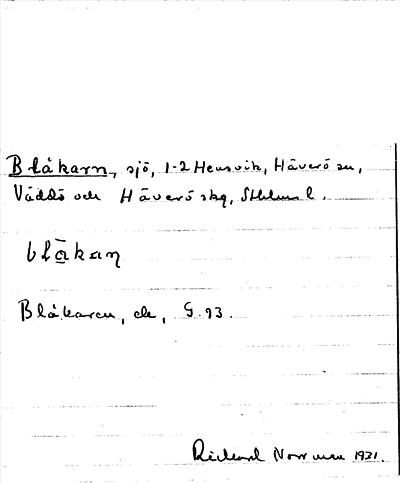 Blåkarn, sjö, 1-2 Hensvik, Häverö sn,
Väddö och Häverö skg, Sthlms l.
blåkaɳ
Blåkaren, ek, G. 93.
Richard Norrman 1931.